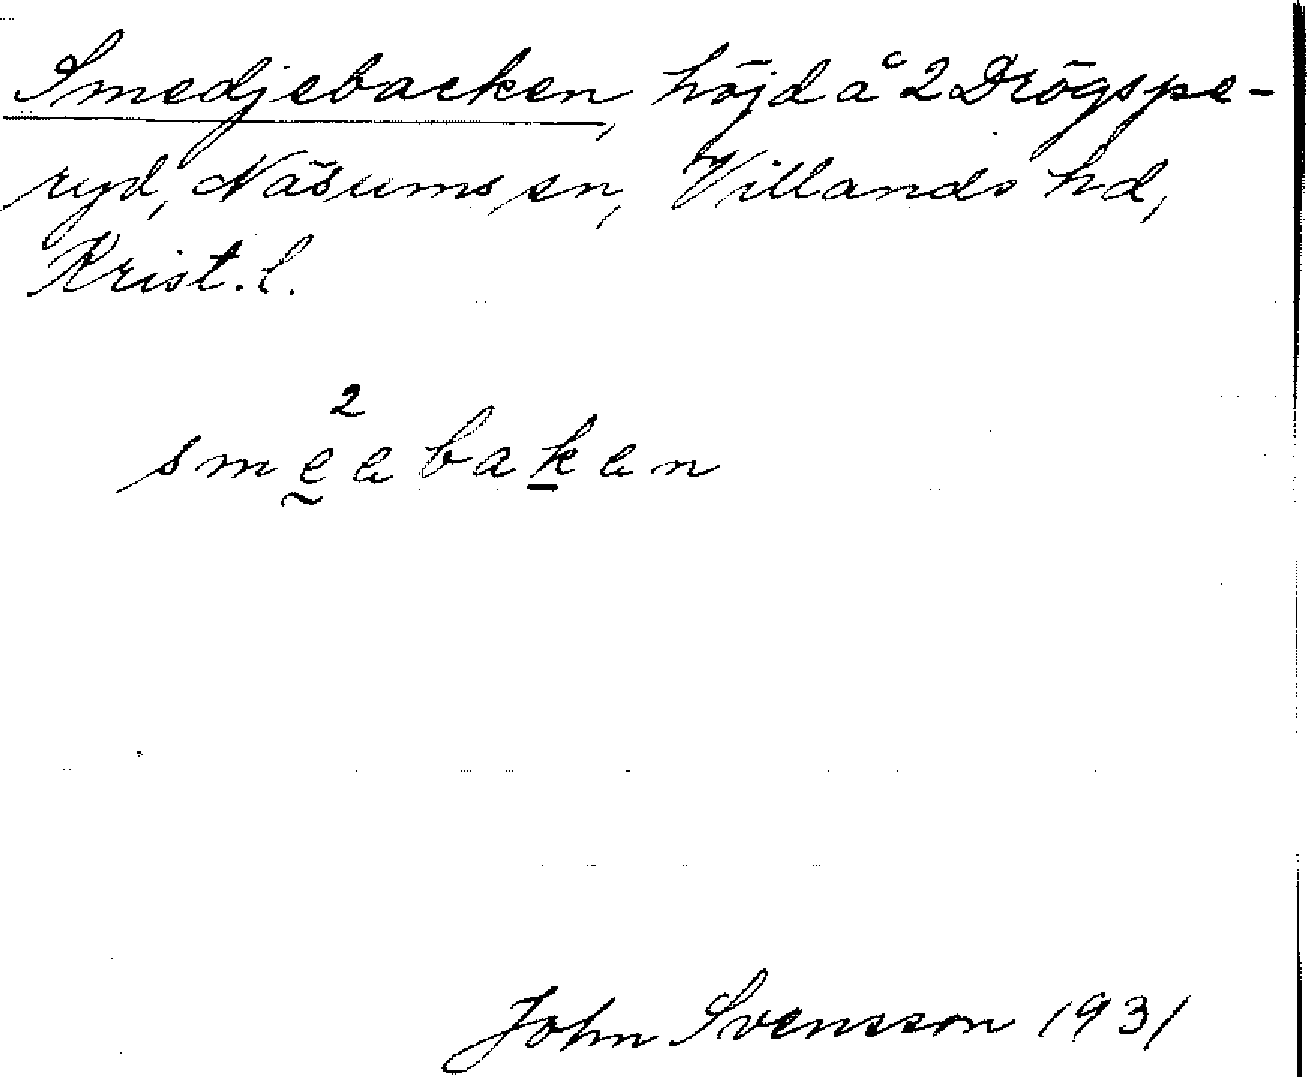 Smedjebacken, höjd å 2 Drögspe-
ryd, Näsums sn, Villands hd,
Krist. l.
2
smeebaken
John Svensson 1931